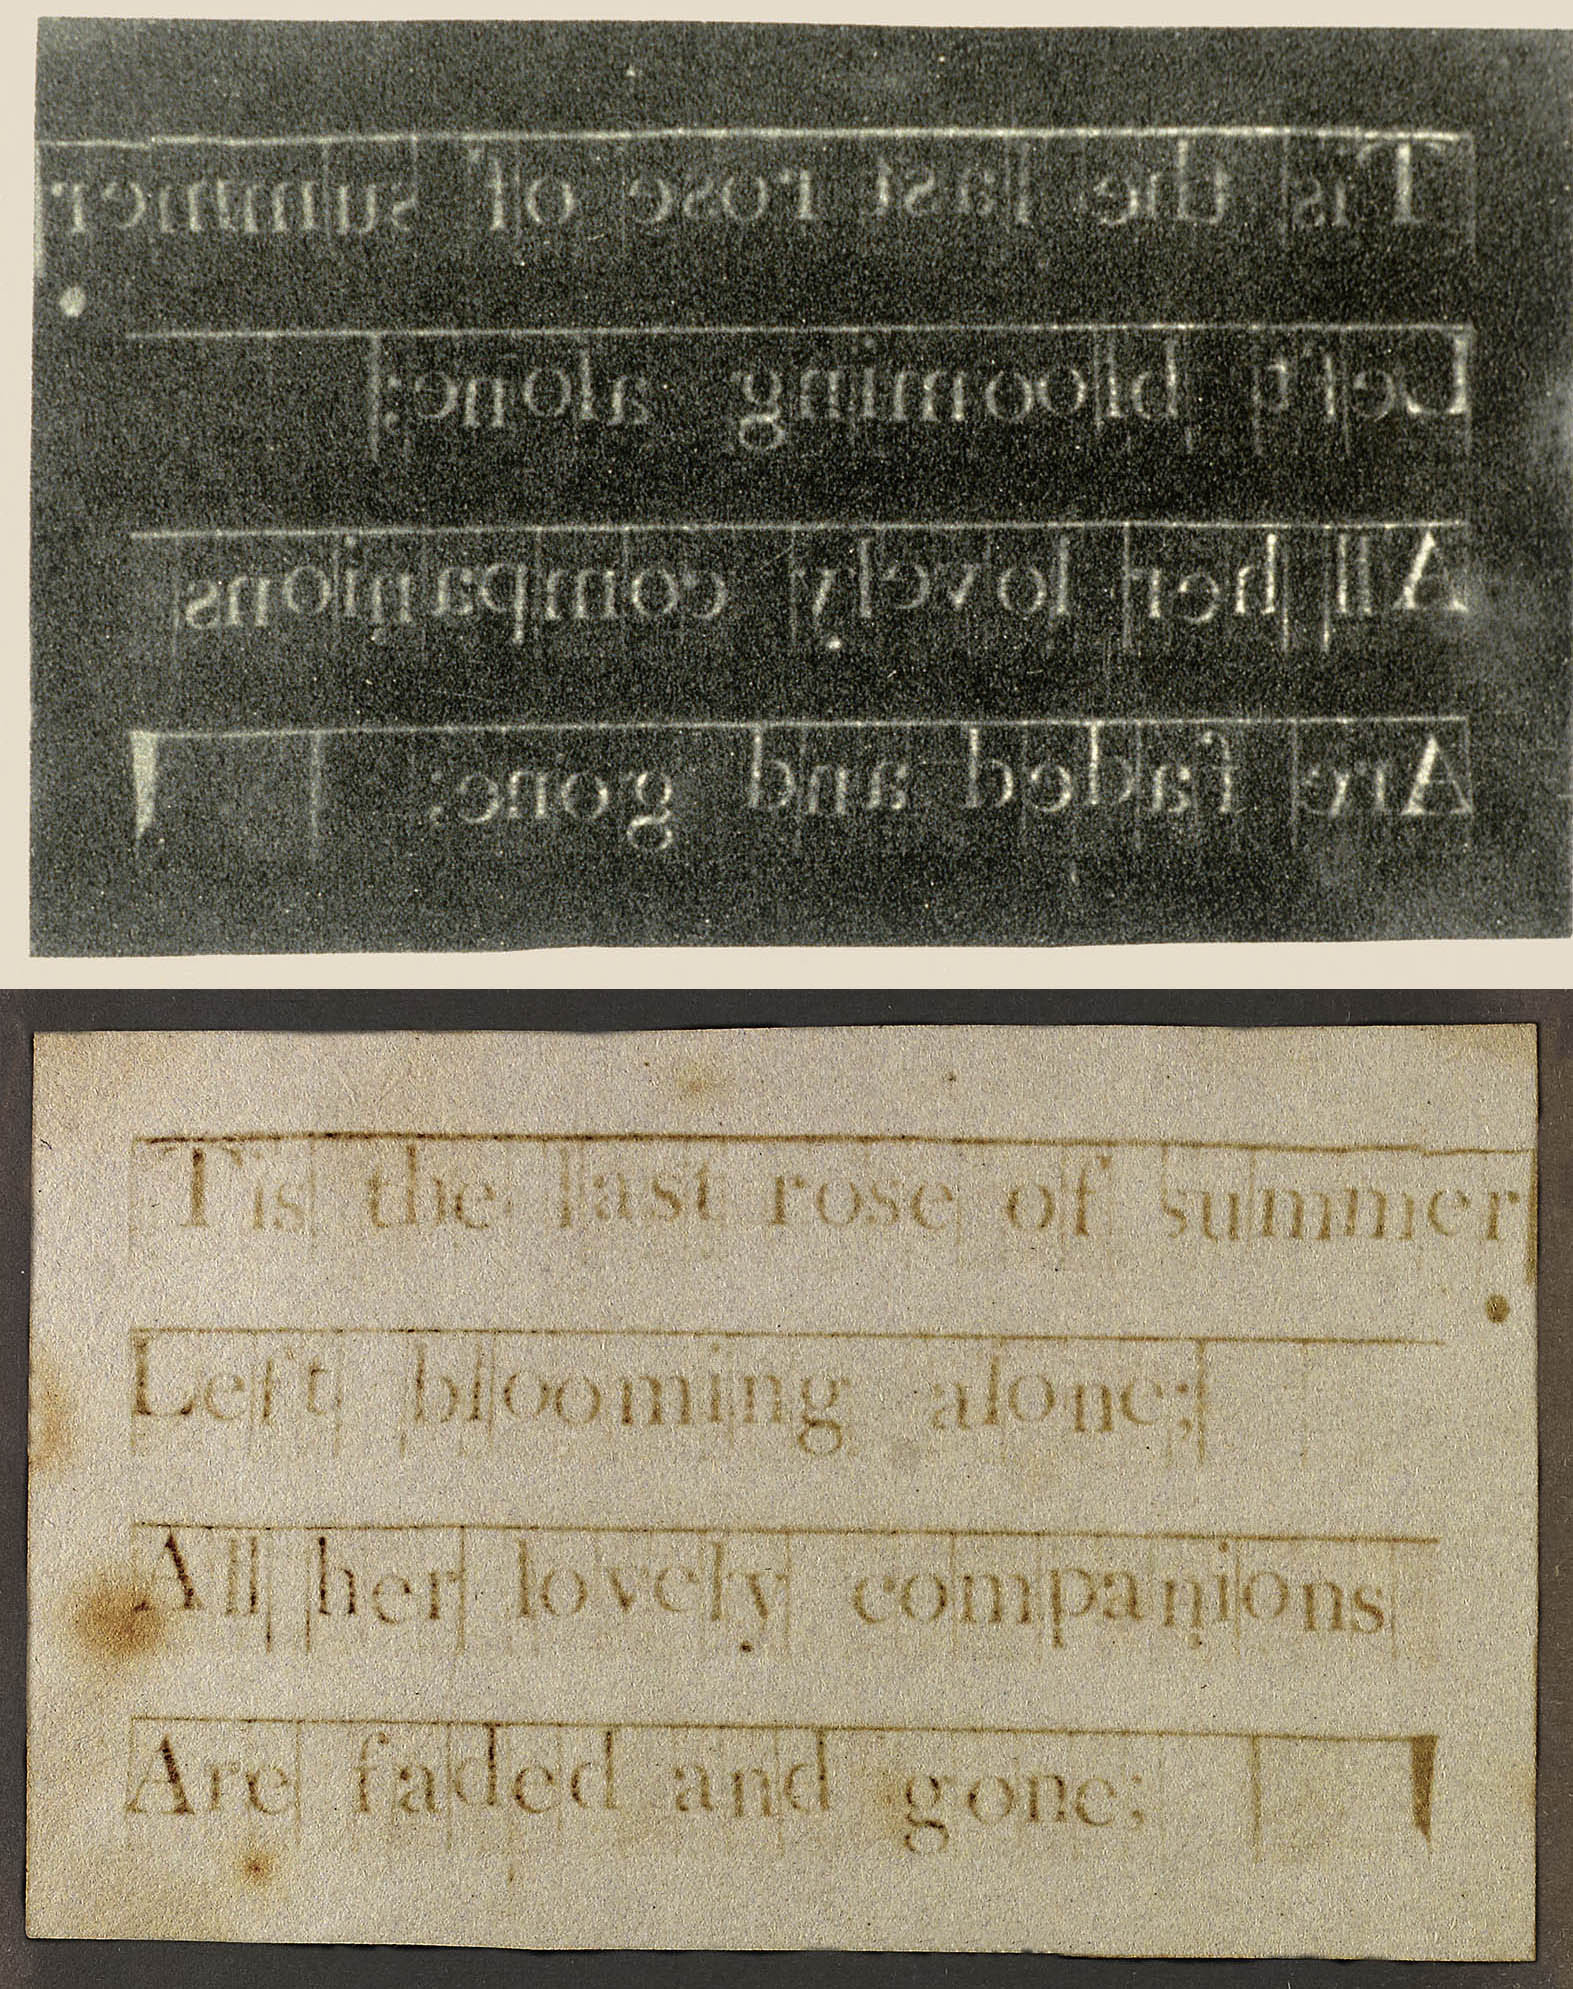 Tis the last rose of summer
Left blooming alone;
All her lovely companions
Are faded and gone;
Tis the last rose of summer
Left blooming alone;
All her lovely companions
Are faded and gone;